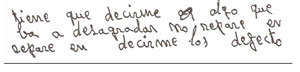 tiene que decirme algo que
ba a desagradar no repare en
repare en decirme los defecto